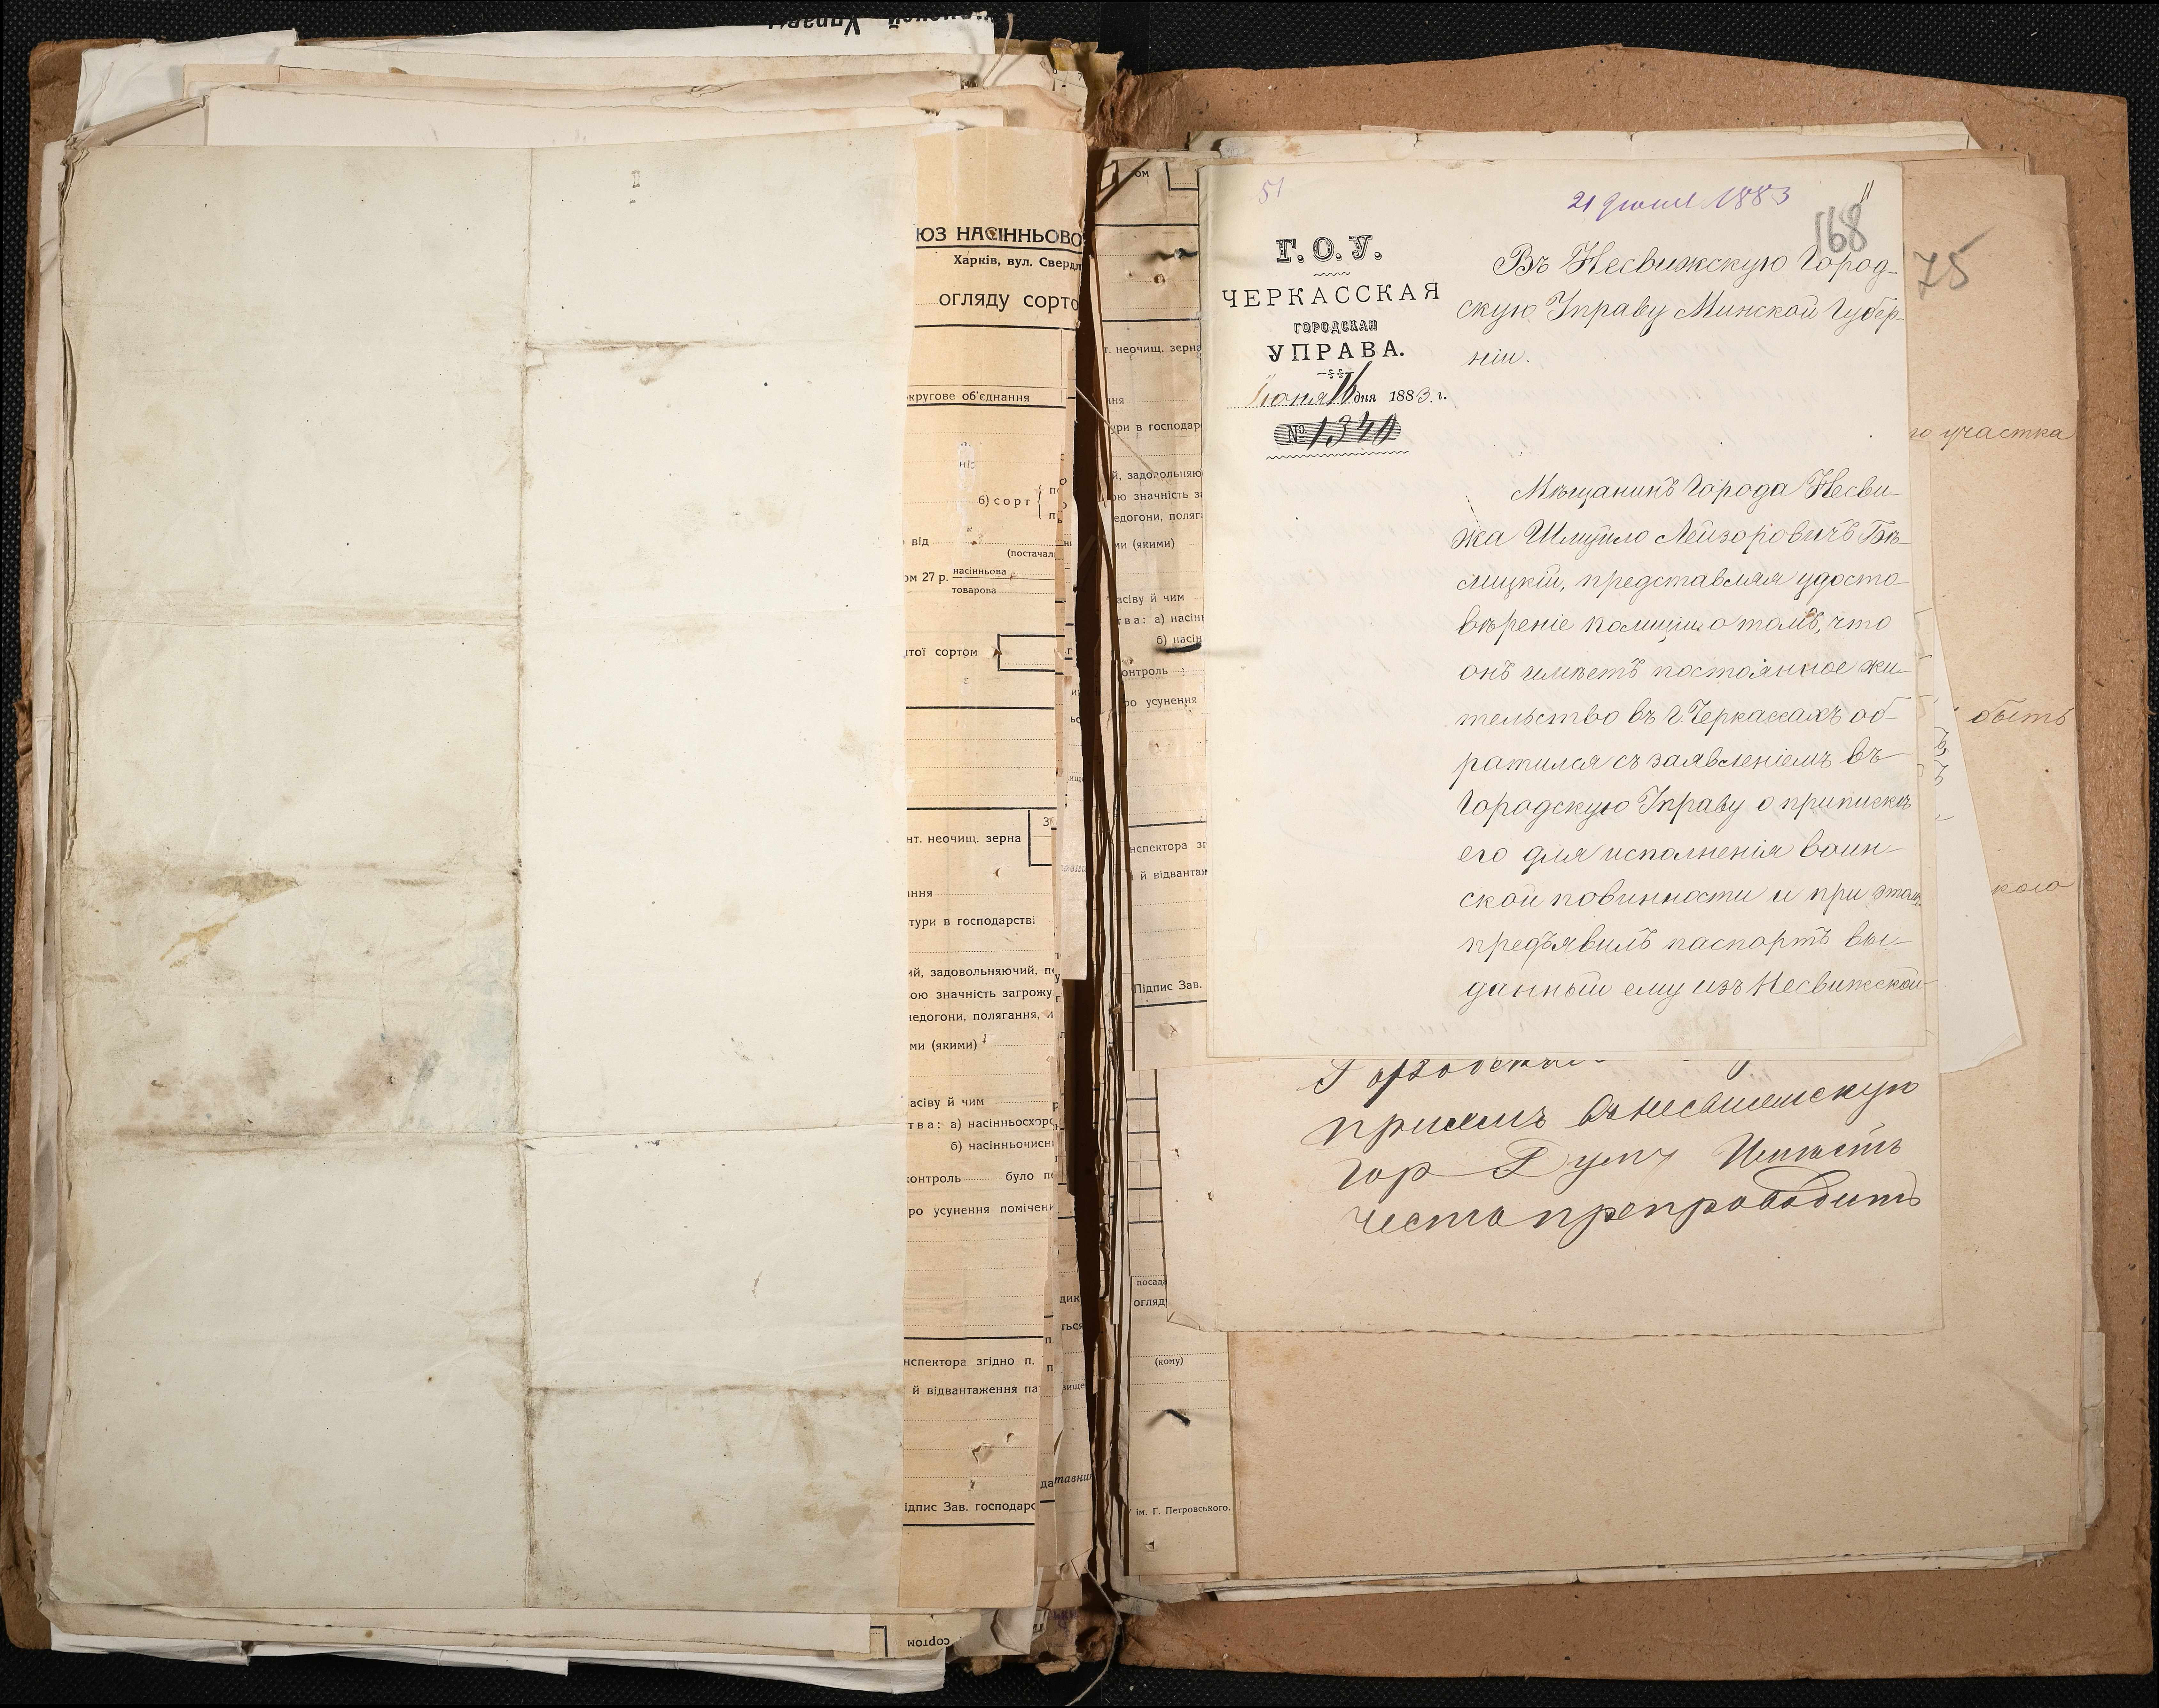 ЮЗ НАСІННЬОВО
Харків, вул. Сверд
огляду сорто
кругове об'єднання
б) сорт
від
(постачал
ом 27 р. насінньова
товарова
тої сортом
нт. неочищ. зерна
ання
тури в господарстві
ий, задовольняючий, п
ою значність загрожу
едогони, полягання,
ми (якими)
асіву й чим
тва: а) насінньосхоро
б) насінньочисн
контроль було п
ро усунення помічен
нспектора згідно п.
й відвантаження па
ідпис Зав. господарс
сортом
ом
т. неочищ. зерна
ння
ури в господар
й, задовольняю
ою значність з
едогони, поляг
ми (якими)
асіву й чим
тва: а) насін
б) насін
онтроль
ро усунення
нспектора зг
й відвантаж
Підпис Зав.
посад
огляд
(кому)
ім. Г. Петровського.
51
21 Іюня 1883
168
Г. О. У.
ЧЕРКАССКАЯ
ГОРОДСКАЯ
УПРАВА.
Іюня 16 дня 1883. г.
№ 1340
Въ Несвижскую Город-
скую Управу Минской Губер-
ніи.
Мѣщанинъ Города Несви-
жа Шмуйло Лейзоровичъ Бѣ-
лицкій, представляя удосто-
вѣреніе полиціи о томъ, что
онъ имѣетъ постоянное жи-
тельство въ г. Черкассахъ об-
ратился съ заявленіемъ въ
Городскую Управу о припискѣ
его для исполненія воин-
ской повинности и при этомъ
предъявилъ паспортъ вы-
данный ему изъ Несвижской
75
го участка
быть
кого
Гор Думу Имѣетъ
честь препроводить